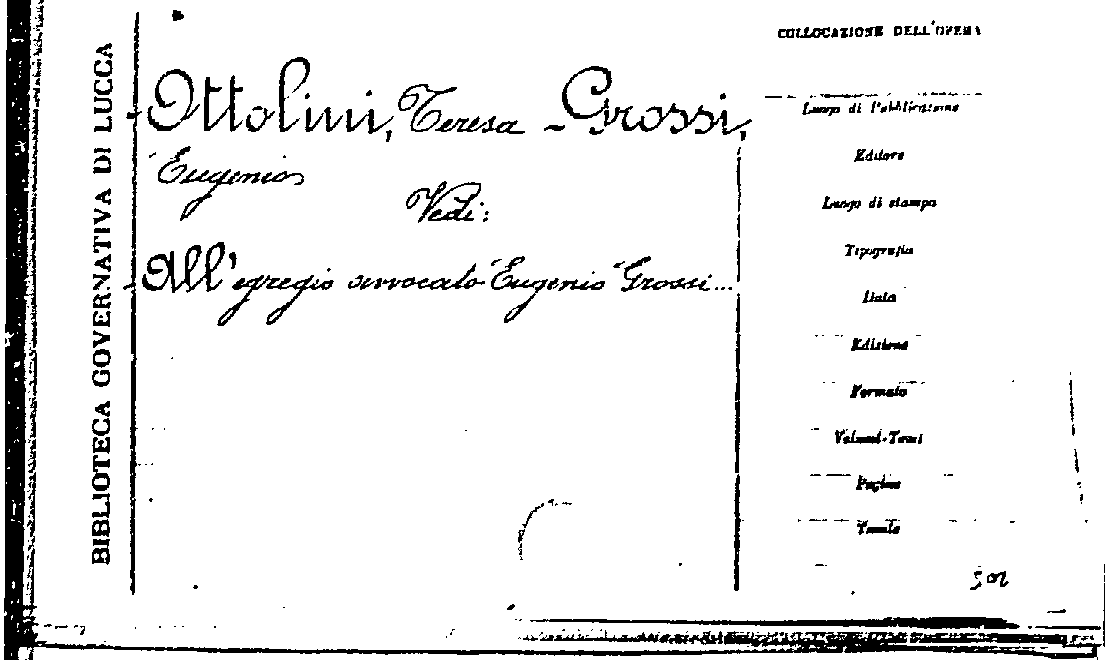 BIBLIOTECA GOVERNATIVA DI LUCCA
Ottolini, Teresa - Grossi,
Eugenio
Vedi:
All'egregio avvocato Eugenio Grossi...
COLLOCAZIONE DELL'OPERA
Luogo di Pubblicazione
Editore
Luogo di stampa
Tipografia
Data
Edizione
Formato
Volumi-Tomi
Pagine
Tavole